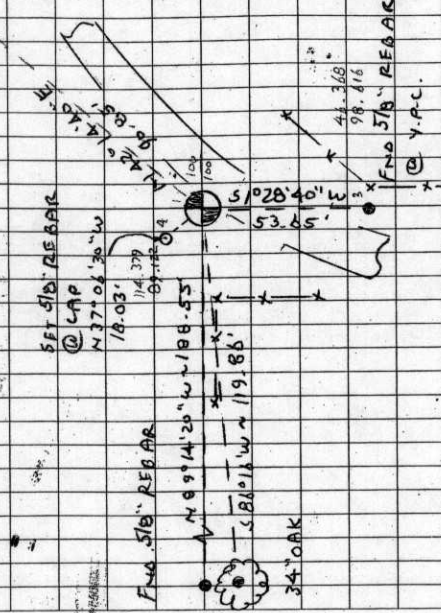 SET 5/8" REBAR
@ CAP
N 37° 06' 30" W
18.03'
114.379
4
1
100
100
N 42° 14' 40" E
S 1° 28' 40" E
53.65'
46.368
98.616
3
FND 5/8" REBAR
@ Y.P.C.
FND 5/8" REBAR
N 89° 14' 20" W ~ 188.55'
S 86° 16' W ~ 119.86'
34" OAK